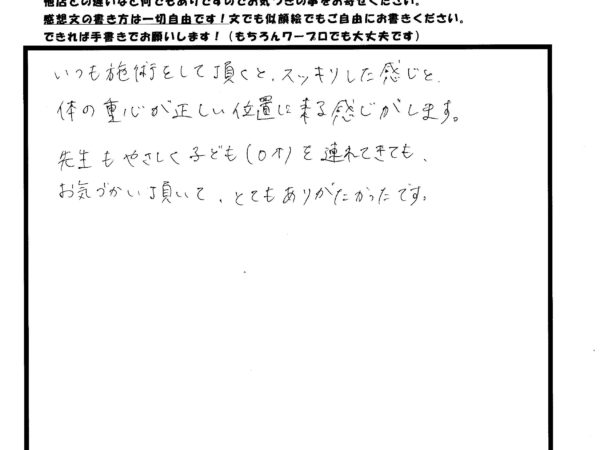 他店との違いなど何でもありですのでお気づきの事をお寄せください。
感想文の書き方は一切自由です!文でも似顔絵でもご自由にお書きください。
できれば手書きでお願いします!(もちろんワープロでも大丈夫です)
いつも施術をして頂くと、スッキリした感じと、
体の重心が正しい位置に来る感じがします。
先生もやさしく子ども(0才)を連れてきても、
お気づかい頂いて、とてもありがたかったです。